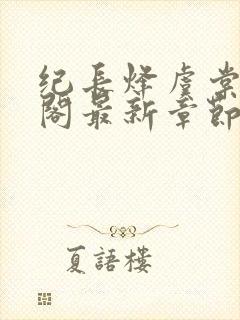 纪長烽虞棠
閣最新章節
夏語樓